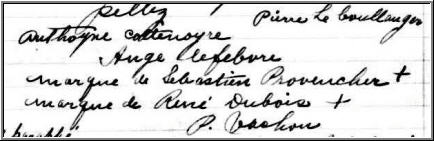 pellez
Pierre Le boullanger
anthoyne
Ange Lefebvre
marque de Sébastien Provencher +
marque de René Dubois +
P. Vachon